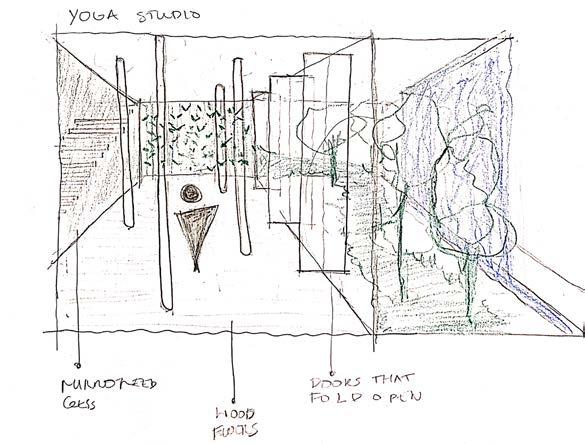 YOGA STUDIO
MIRRORED
GLASS
WOOD
FLOORS
DOORS THAT
FOLD OPEN